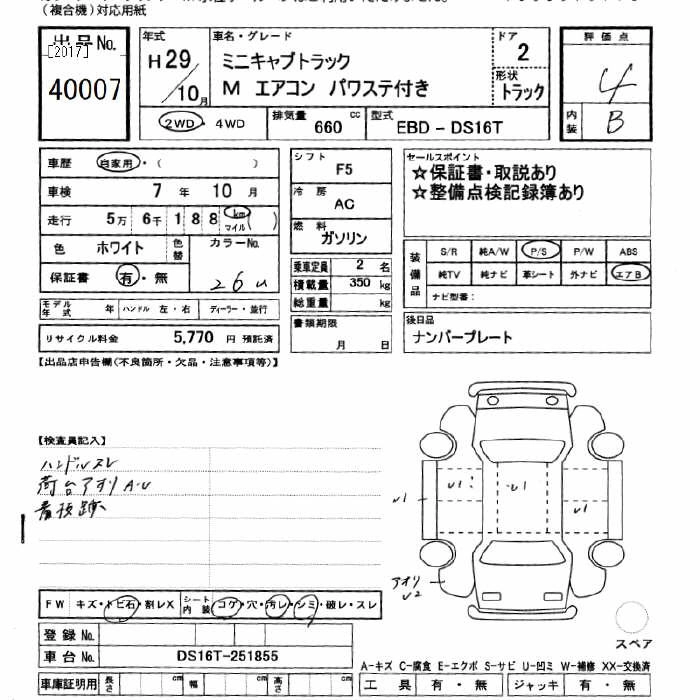 (複合機)対応用紙
出品No.
[2017]
40007
年式
H29
/10月
車名・グレード
ミニキャブトラック
M エアコン パワステ付き
ドア
2
形状
トラック
2WD ・ 4WD
排気量
660 cc
型式
EBD - DS16T
評価点
4
内装
B
車歴 自家用・( )
車検 7 年 10 月
走行 5万 6千 1 8 8 km マイル ( )
色 ホワイト
色替
カラーNo.
26U
保証書 有・無
モデル年式 年
ハンドル 左・右
ディーラー・並行
リサイクル料金 5,770 円 預託済
シフト
F5
冷房
AC
燃料
ガソリン
乗車定員 2 名
積載量 350 kg
総重量 kg
書類期限
月 日
セールスポイント
☆保証書・取説あり
☆整備点検記録簿あり
装備品
S/R 純A/W P/S P/W ABS
純TV 純ナビ 革シート 外ナビ エアB
ナビ型番:
後日品
ナンバープレート
【出品店申告欄(不良箇所・欠品・注意事項等)】
【検査員記入】
ハンドルスレ
荷台アオリA・U
看板跡
U1
U1
U1
U1
アオリ
U2
スペア
FW キズ・トビ石・割レX
シート内装 コゲ・穴・汚レ・シミ・破レ・スレ
登録No.
車台No. DS16T-251855
車庫証明用 長さ cm 幅 cm 高さ cm
A-キズ C-腐食 E-エクボ S-サビ U-凹ミ W-補修 XX-交換済
工具 有・無 ジャッキ 有・無